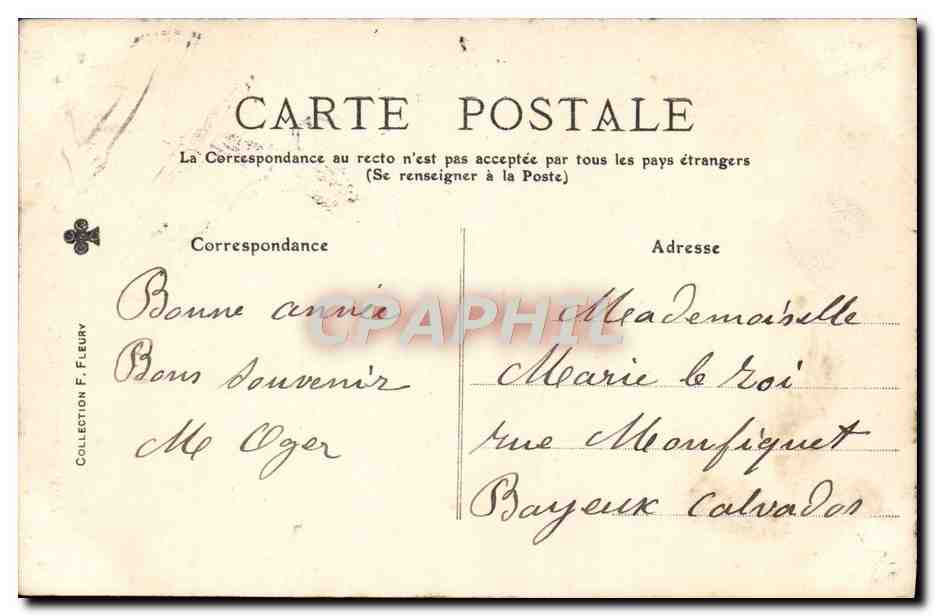 CARTE POSTALE
La Correspondance au recto n'est pas acceptée par tous les pays étrangers
(Se renseigner à la Poste)
COLLECTION F. FLEURY
Correspondance
Bonne année
Bons souvenir
M Oger
Adresse
Mademoiselle
Marie le roi
rue Monfiquet
Bayeux Calvados
CPAPHIL